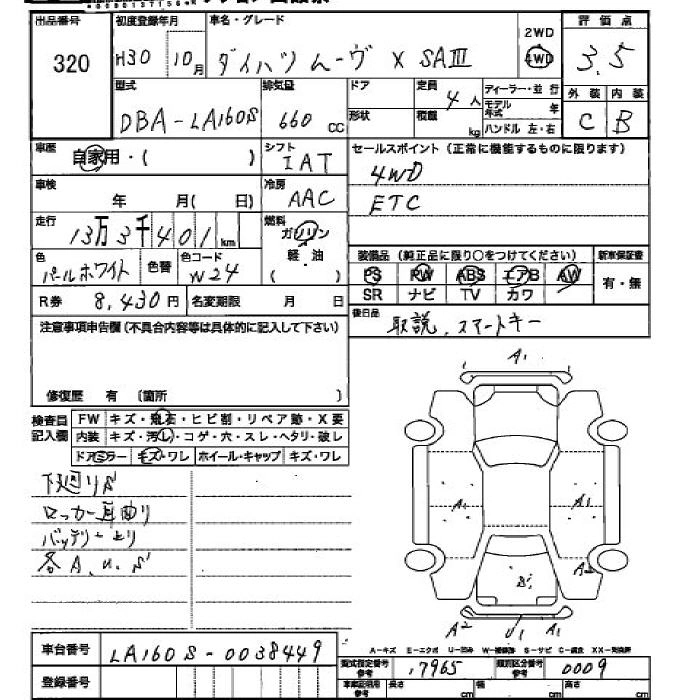 出品番号 初度登録年月 車名・グレード 2WD 評価点
320 H30 10月 ダイハツムーヴ X SAIII 4WD 3.5
型式 排気量 ドア 定員 4人 ディーラー・並行 外装 内装
DBA-LA160S 660cc 形状 積載 kg モデル年式 年 C B
ハンドル 左・右
車歴 自家用・( ) シフト IAT セールスポイント (正常に機能するものに限ります)
4WD
車検 年 月( 日) 冷房 AAC ETC
走行 13万3千401km 燃料 ガソリン
軽・油
( )
色 パールホワイト 色替 色コード W24
装備品 (純正品に限り○をつけてください) 新車保証書
PS PW ABS エアB AW 有・無
SR ナビ TV カワ
R券 8,430円 名変期限 月 日
後日品 取説、スマートキー
注意事項申告欄 (不具合内容等は具体的に記入して下さい)
修復歴 有 〔箇所 〕
検査員記入欄 FW キズ・飛石・ヒビ割・リペア跡・X要
内装 キズ・汚レ・コゲ・穴・スレ・ヘタリ・破レ
ドアミラー キズ・ワレ ホイール・キャップ キズ・ワレ
下廻りS
ロッカー耳曲り
バッテリー上り
各A、U、S
A1
A1 A1
A2
S1
A2 U1 A1
車台番号 LA160S-0038449
登録番号
A-キズ E-エクボ U-凹み W-補修跡 S-サビ C-腐食 XX-交換済
型式指定番号 参考 17965 類別区分番号 参考 0009
車庫証明用 参考 長さ cm 幅 cm 高さ cm